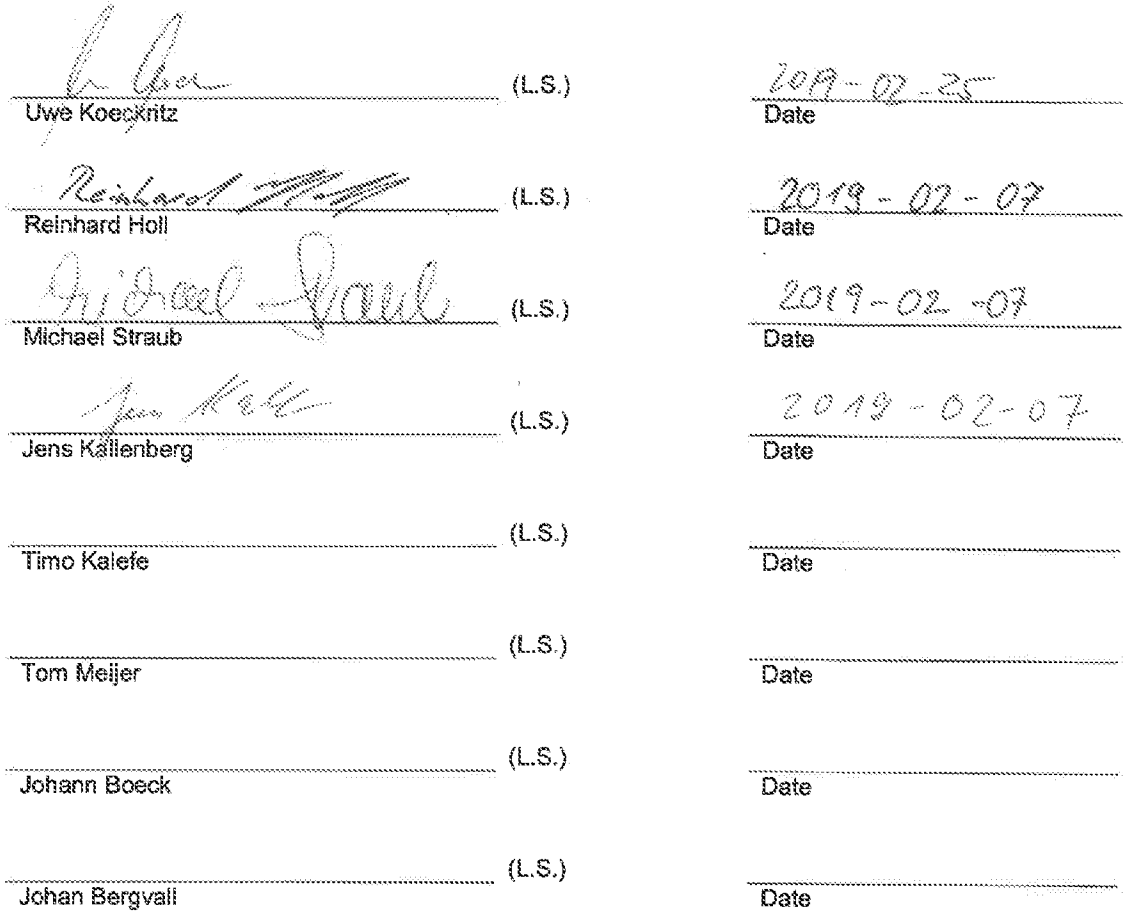 (L.S.) 2019-02-25
Uwe Koeckritz Date
Reinhard Holl (L.S.) 2019-02-07
Reinhard Holl Date
Michael Straub (L.S.) 2019-02-07
Michael Straub Date
Jens (L.S.) 2019-02-07
Jens Kallenberg Date
(L.S.)
Timo Kalefe Date
(L.S.)
Tom Meijer Date
(L.S.)
Johann Boeck Date
(L.S.)
Johan Bergvall Date